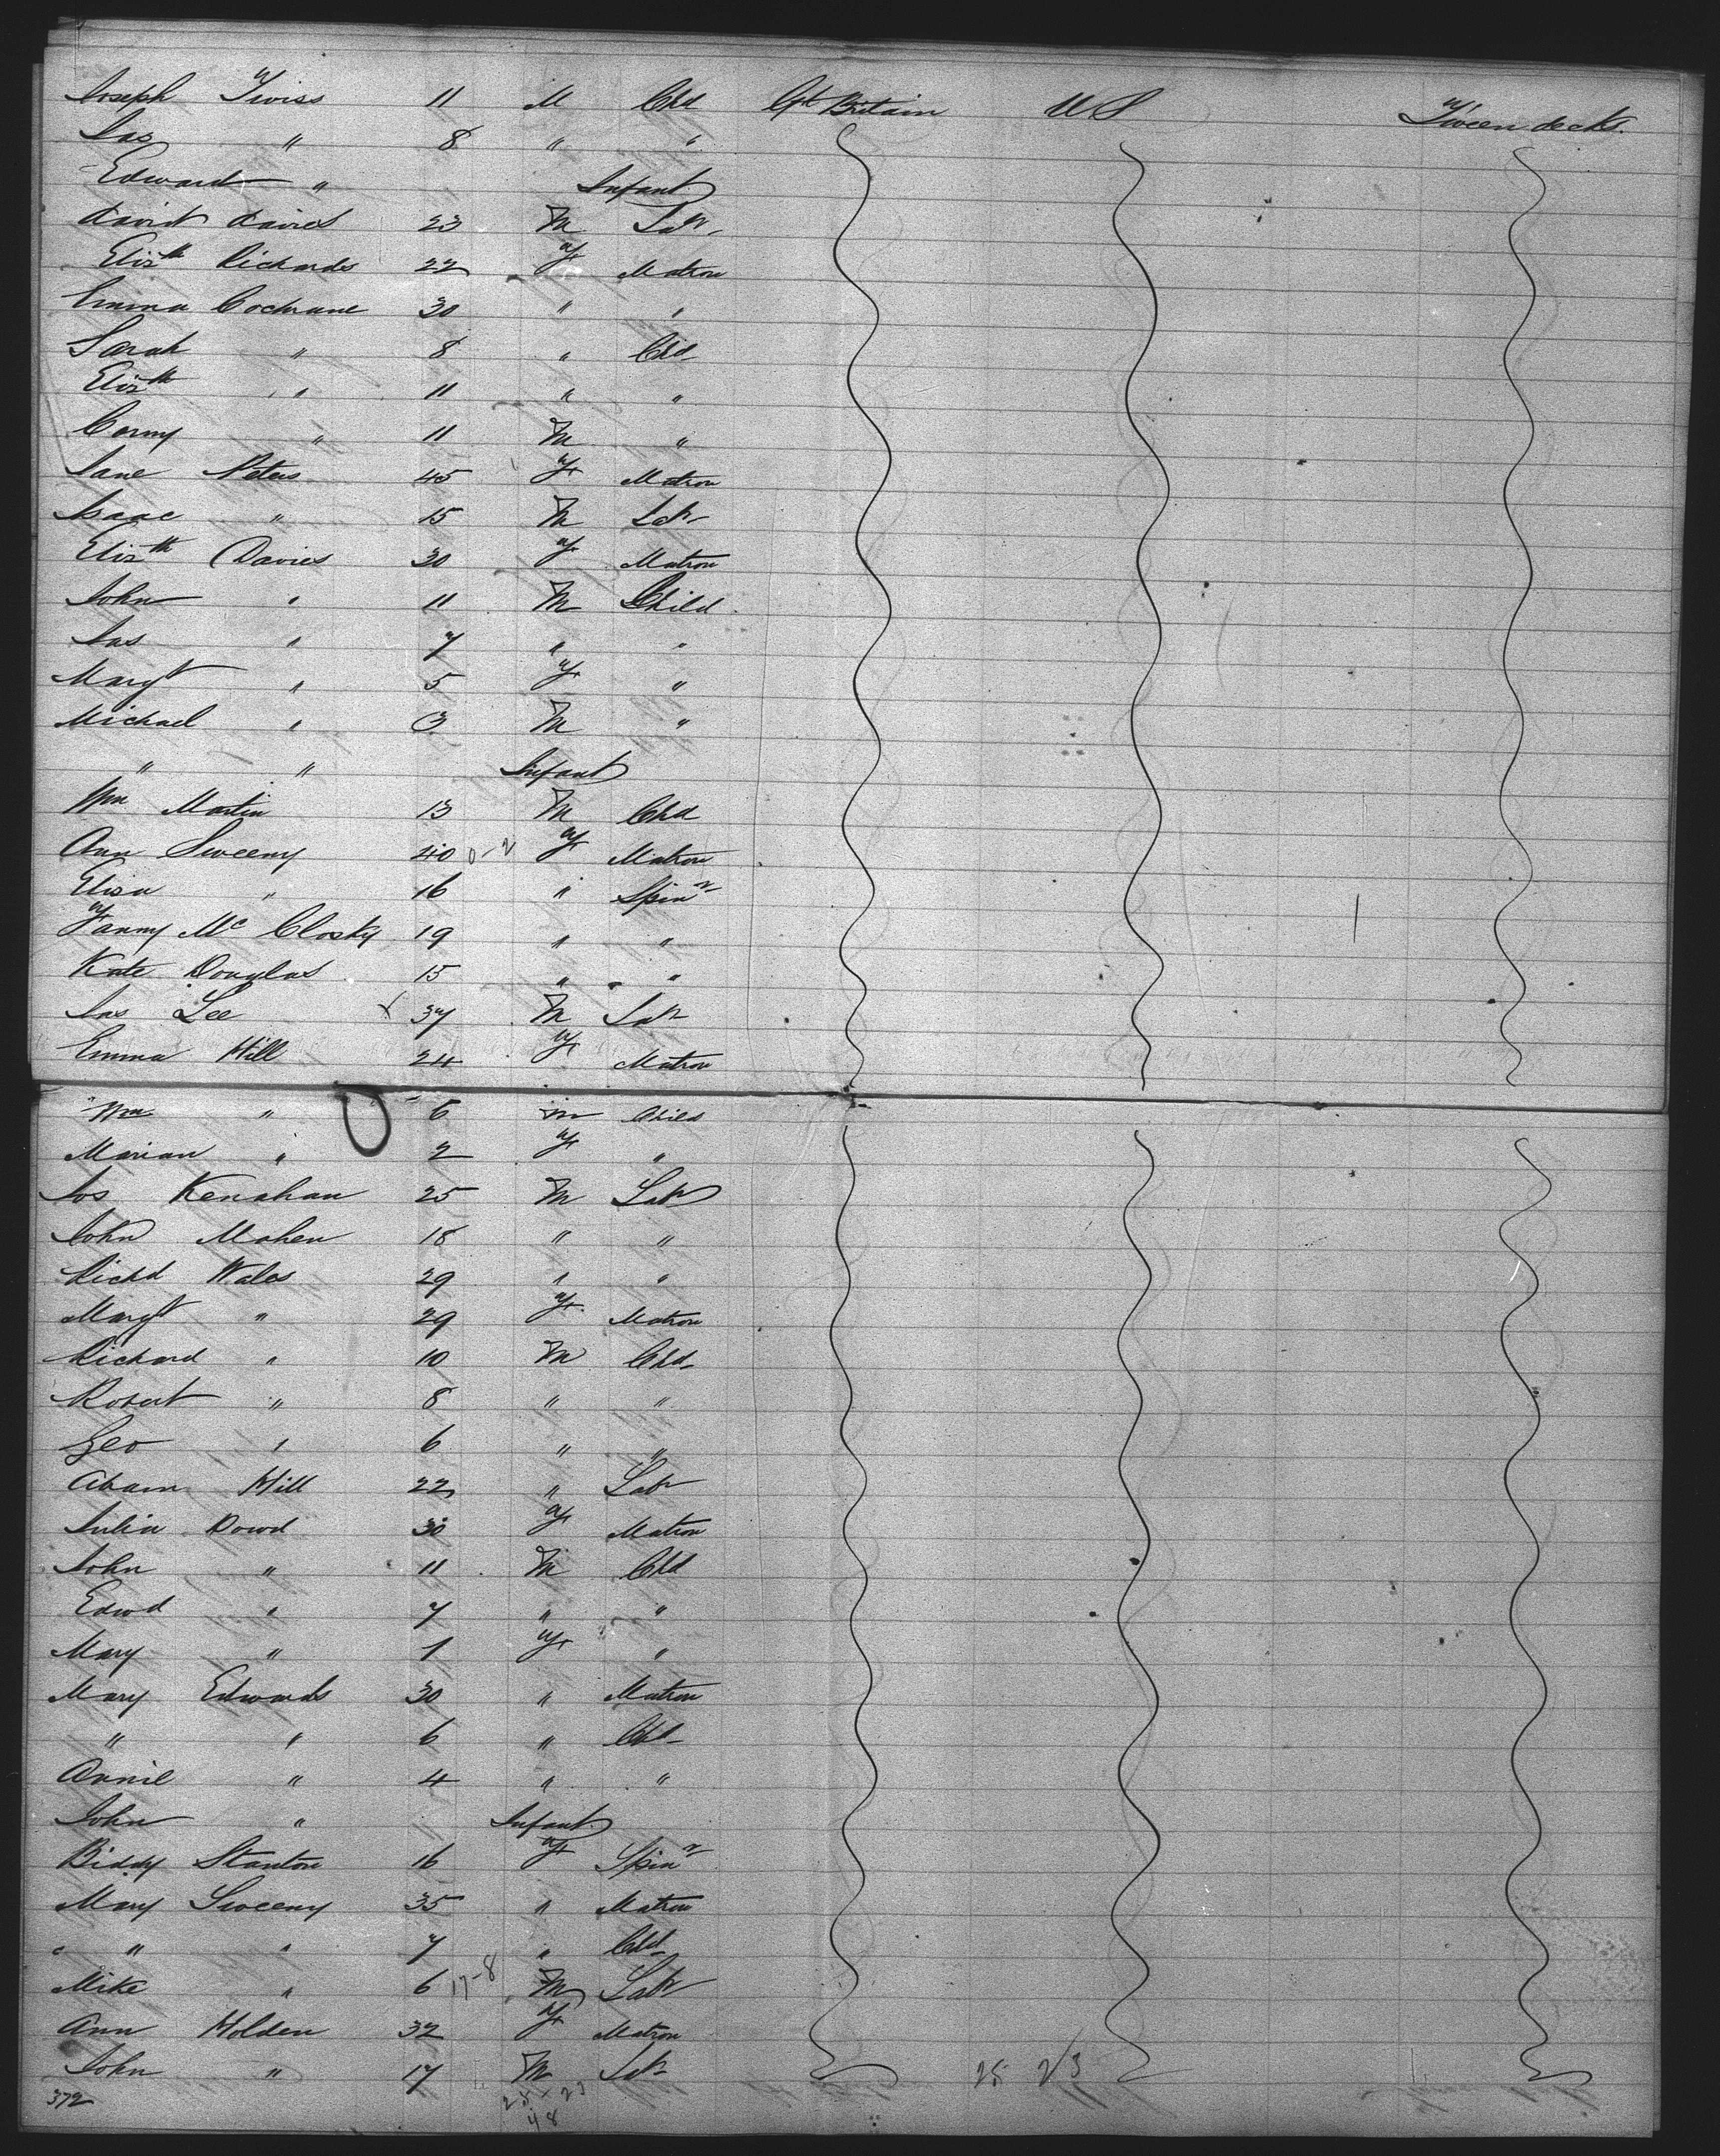 Joseph Twiss 11 M Chd Gt Britain U S Tween decks.
Jas " 8 " "
Edward " Infant
David Davies 23 M Labr
Elizth Richards 22 F Matron
Emma Cochrane 30 " "
Sarah " 8 " Chd
Elizth " 11 " "
" 11 M "
Jane Peters 45 F Matron
Isaac " 15 M Labr
Elizth Davies 30 F Matron
John " 11 M Child
Jas " 7 " "
Margt " 5 F "
Michael " 3 M "
" " Infant
Wm Martin 13 M Chd
Ann Sweeny 40 0-2 F Matron
Eliza " 16 " Spinr
Fanny Mc Closky 19 " "
Kate Douglas 15 " "
Jas Lee x 37 M Labr
Emma Hill 24 F Matron
Wm " 6 M Child
Marian " 2 F "
Jos Kenahan 25 M Labr
John Mahen 18 " "
Richd Wales 29 " "
Margt " 29 F Matron
Richard " 10 M Chd
Robert " 8 " "
Geo " 6 " "
Adam Hill 22 " Labr
Julia Dowd 30 F Matron
John " 11 M Chd
Edwd " 7 " "
Mary " 1 F "
Mary Edwards 30 " Matron
" " 6 " Chd
Annie " 4 " "
John " Infant
Biddy Stanton 16 F Spinr
Mary Sweeny 35 " Matron
" " 7 " Chd
Mike " 6 17-8 M Labr
Ann Holden 32 F Matron
John " 17 M Labr 25 23
372 25-23
48